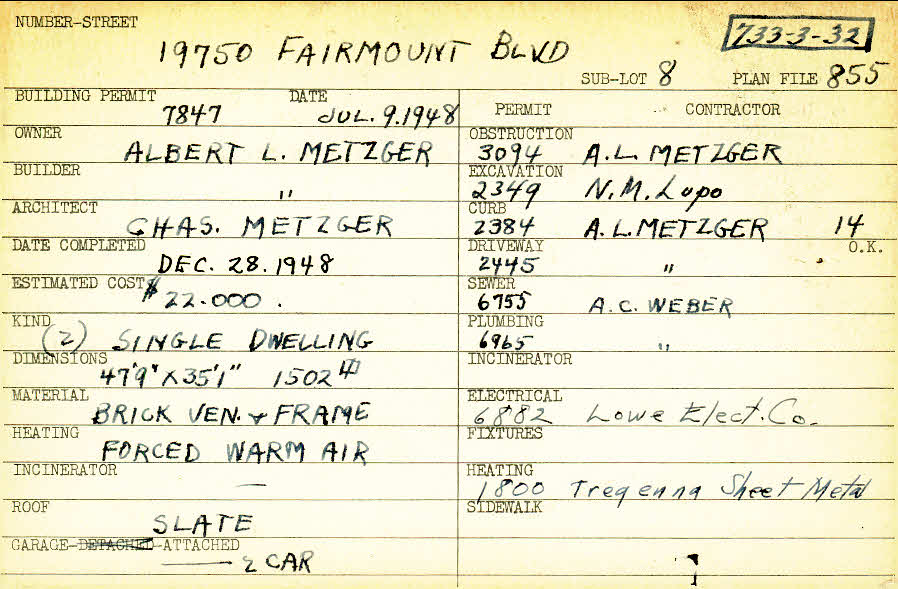 NUMBER-STREET
19750 FAIRMOUNT BLVD
733-3-32
SUB-LOT 8 PLAN FILE 855
BUILDING PERMIT DATE
7847 JUL. 9. 1948
OWNER
ALBERT L. METZGER
BUILDER
"
ARCHITECT
CHAS. METZGER
DATE COMPLETED
DEC. 28. 1948
ESTIMATED COST
$22.000.
KIND
(2) SINGLE DWELLING
DIMENSIONS
47'9" X 35'1" 1502
MATERIAL
BRICK VEN. & FRAME
HEATING
FORCED WARM AIR
INCINERATOR
—
ROOF
SLATE
GARAGE-DETACHED-ATTACHED
2 CAR
PERMIT CONTRACTOR
OBSTRUCTION
3094 A.L. METZGER
EXCAVATION
2349 N.M. Lupo
CURB
2384 A.L. METZGER 14
DRIVEWAY O.K.
2445 "
SEWER
6755 A.C. WEBER
PLUMBING
6965 "
INCINERATOR
ELECTRICAL
6882 Lowe Elect. Co.
FIXTURES
HEATING
1800 Tregenna Sheet Metal
SIDEWALK